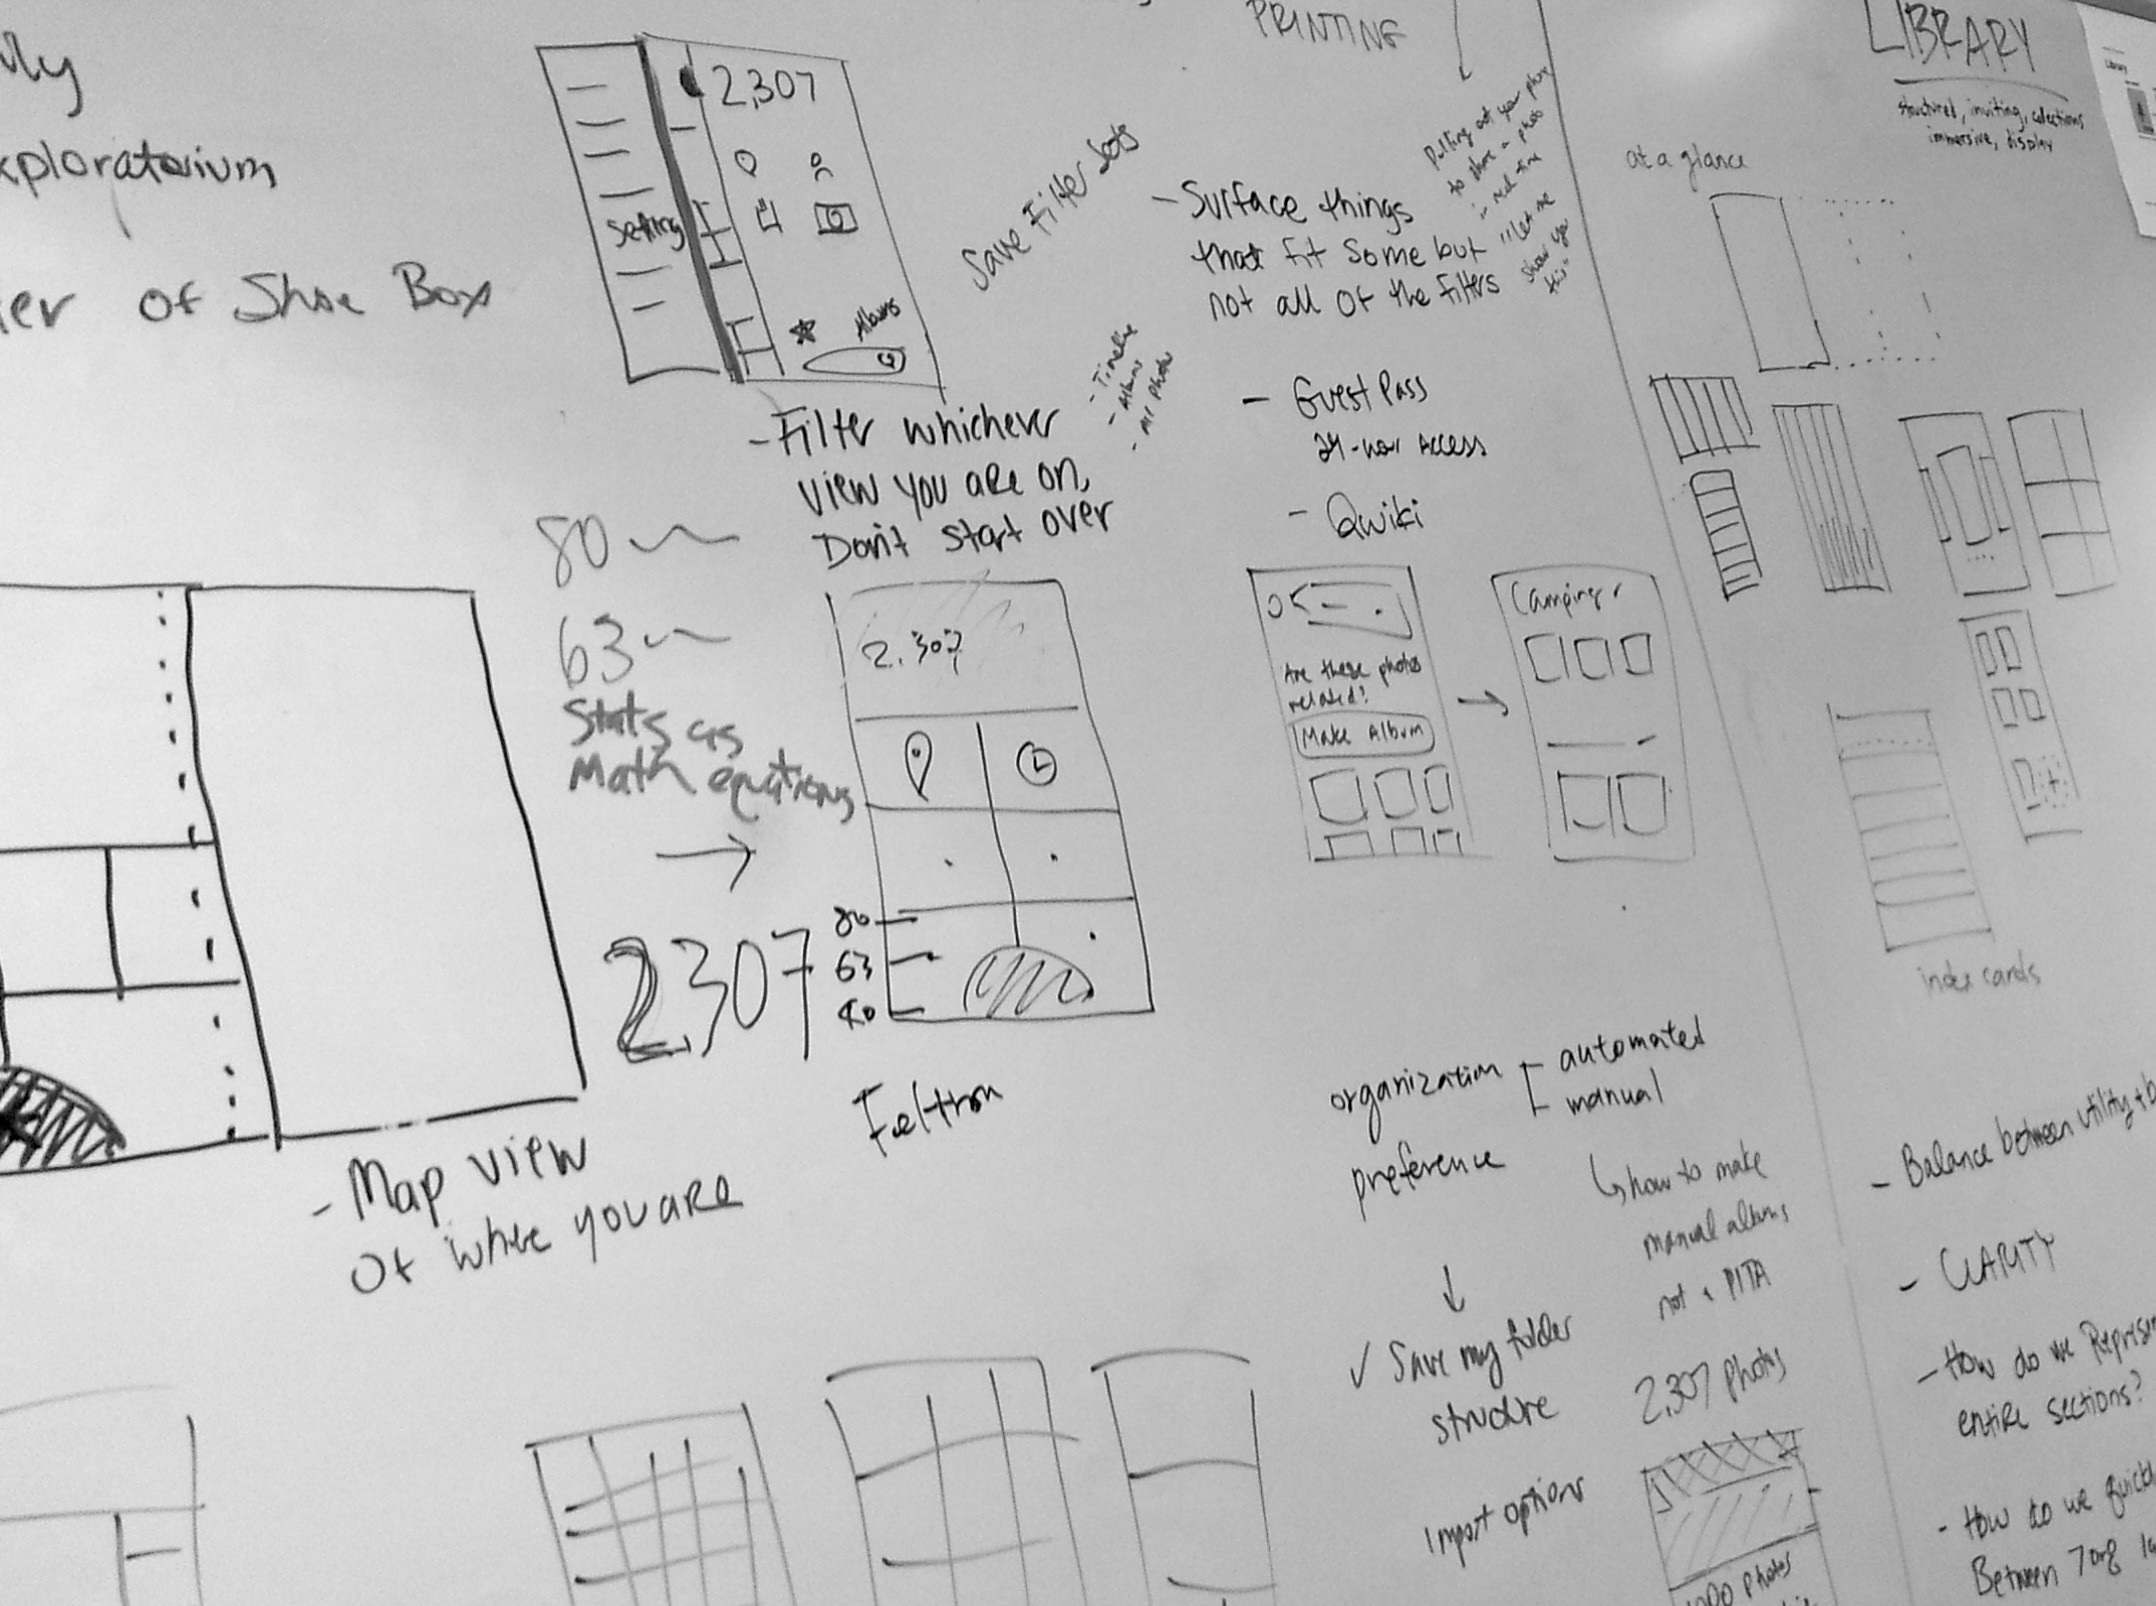 xploratorium
er of Shoe Box
2,307
Setting
Albums
Save Filter Sets
- Filter whichever
view you are on,
Don't start over
- Timeline
- Albums
- All photos
80
63
Stats as
Math equations
2,307
2,307
80
63
40
Feltron
- Map view
of where you are
PRINTING
pulling out your phone
to share a photo
in real-time
"let me
show you
this"
- Surface things
that fit some but
not all of the filters
- Guest Pass
24-hour Access
- Qwiki
Are these photos
related?
Make Album
Camping
organization
preference
automated
manual
how to make
manual albums
not a PITA
✓ Save my folder
structure
Import options
2,307 Photos
photos
LIBRARY
structured, inviting, collections
immersive, display
at a glance
index cards
- Balance between utility + b
- CLARITY
- How do we Represen
entire sections?
- How do we quick
Between 7 org